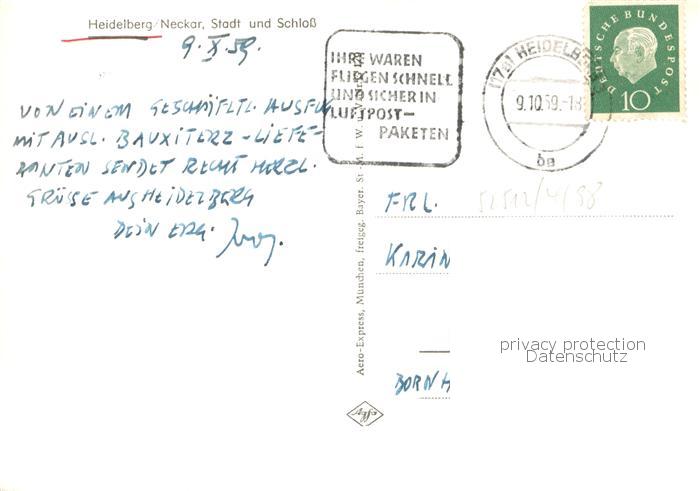 Heidelberg/Neckar, Stadt und Schloß
9. X. 59.
VON EINEM GESCHÄFTL. AUSFLUG
MIT AUSL. BAUXITERZ-LIEFE-
RANTEN SENDET RECHT HERZL.
GRÜSSE AUS HEIDELBERG
DEIN
IHRE WAREN
FLIEGEN SCHNELL
UND SICHER IN
LUFTPOST-
PAKETEN
(17a) HEIDELBERG
9.10.59.-18
ba
DEUTSCHE BUNDESPOST
10
Aero-Express, München, freigeg. Bayer. St. M. f. W.
FRL.
KARIN
BORNH
Agfa
privacy protection
Datenschutz